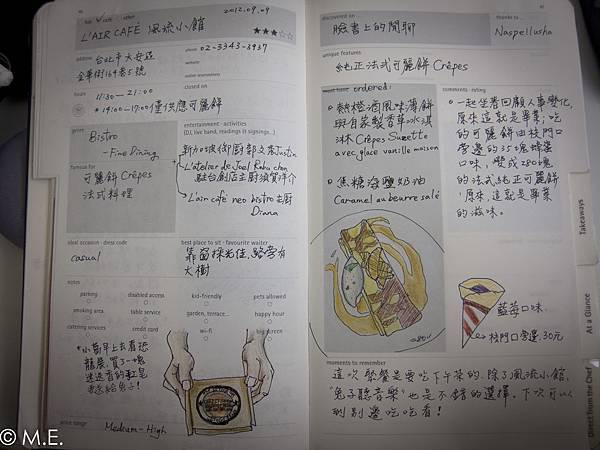 bar cafe other
2012.09.09
L'AIR CAFÉ 風流小館
address 台北市大安區
金華街164巷5號
phone 02-3343-3937
website
hours
11:30 – 21:00
* 14:00-17:00僅供應可麗餅
closed on
genre
Bistro
- Fine Dining
entertainment · activities
(DJ, live band, readings & signings...)
新加坡御廚郭文秀Justin
L'atelier de Joël Robuchon
駐台創店主廚須賀洋介
L'air café neo bistro主廚
Diana
famous for
可麗餅 Crêpes
法式料理
ideal occasion · dress code
casual
best place to sit · favourite waiter
靠窗採光佳、路旁有
大樹
notes
parking
disabled access
kid-friendly
pets allowed
smoking area
table service
garden, terrace...
happy hour
catering services
credit card
wi-fi
big screen
*小萄早上去看恐
龍展,買了一塊
送給兔子!
price range
Medium-High
discovered on
臉書上的閒聊
thanks to
Naspellusha
unique features
純正法式可麗餅 Crêpes
ordered:
熱橙酒風味薄餅
與自家製香草冰淇
淋 Crêpes Suzette
avec glace vanille maison
焦糖海鹽奶油
Caramel au beurre salé
comments · rating
一起坐著回顧人事變化,
原來這就是畢業;吃
的可麗餅由校門口
旁邊的35塊蜂蜜
口味,變成280塊
的法式純正可麗餅
,原來,這就是畢業
的滋味。
藍莓口味
校門口旁邊,30元
moments to remember
這次聚餐是要吃下午茶的,除了風流小館,
"兔子聽音樂"也是不錯的選擇,下次可以
到別邊吃吃看!
Takeaways
At a Glance
Direct from the Chef
© M.E.